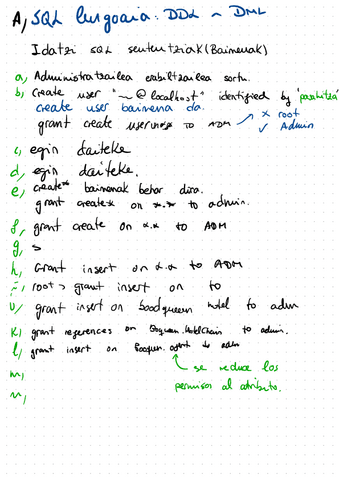 A, SQL lengoaia: DDL ~ DML
Idatzi SQL sententziak (Baimenak)
a, Administratzailea erabiltzailea sortu.
b, create user "~@localhost" identified by 'pasahitza'
create user baimena da. x root
grant create user on *.* to ADM ✓ Admin
c, egin daiteke
d, egin daiteke.
e, create* baimenak behar dira.
grant create* on *.* to admin.
f, grant create on *.* to ADM
g, >
h, Grant insert on *.* to ADM
ñ, root > grant insert on to
grant insert on hotel to adm
k, grant references on HotelChain to admin.
l, grant insert on to adm
se reduce los
permisos al atributo.
m,
n,